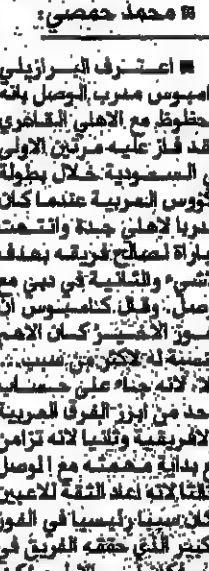 محمد حمصي:
اعترف البرازيلي
امبوس مدرب الوصل بانه
حظوظ مع الاهلي القاهري
قد فاز عليه مرتين الاولى
السعودية خلال بطولة
كؤوس العربية عندما كان
دربا لاهلي جدة وانتهت
باراة لصالح فريقه بهدف
شيء والثانية في دبي مع
وصل، وقال كامبوس ان
فوز الاخير كان الاهم
نسبة له لاكثر من سبب،
لانه جاء على حساب
حد من ابرز الفرق العربية
لافريقية وثانيا لانه تزامن
بداية مهمته مع الوصل
ثالثا لانه اعاد الثقة للاعبين
كان سببا رئيسيا في الفوز
كبير الذي حققه الفريق في